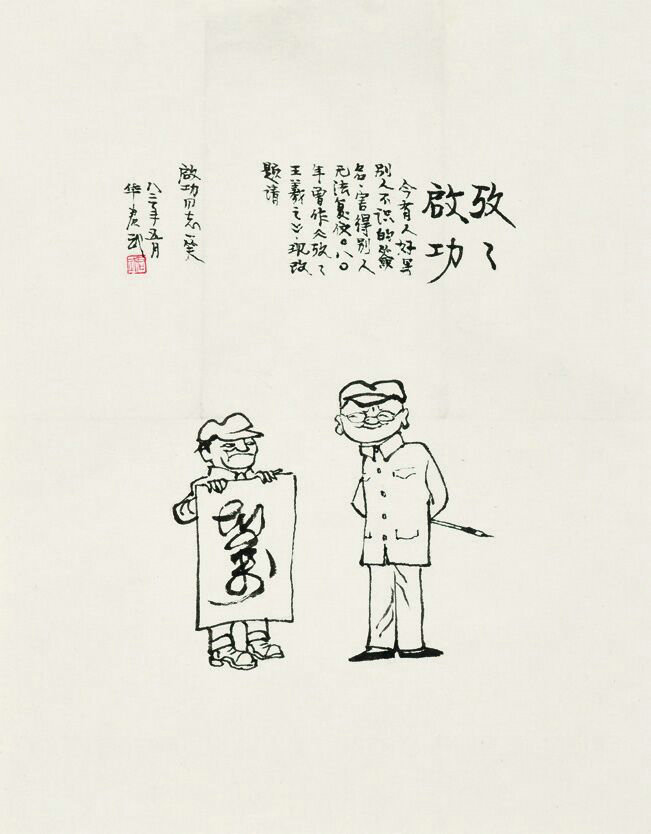 攷々
啟功
今有人好写
别人不识的签
名、害得别人
无法复信。八〇
年曾作《攷々
王羲之》、现改
题请
啟功同志一笑
八二年五月
华君武